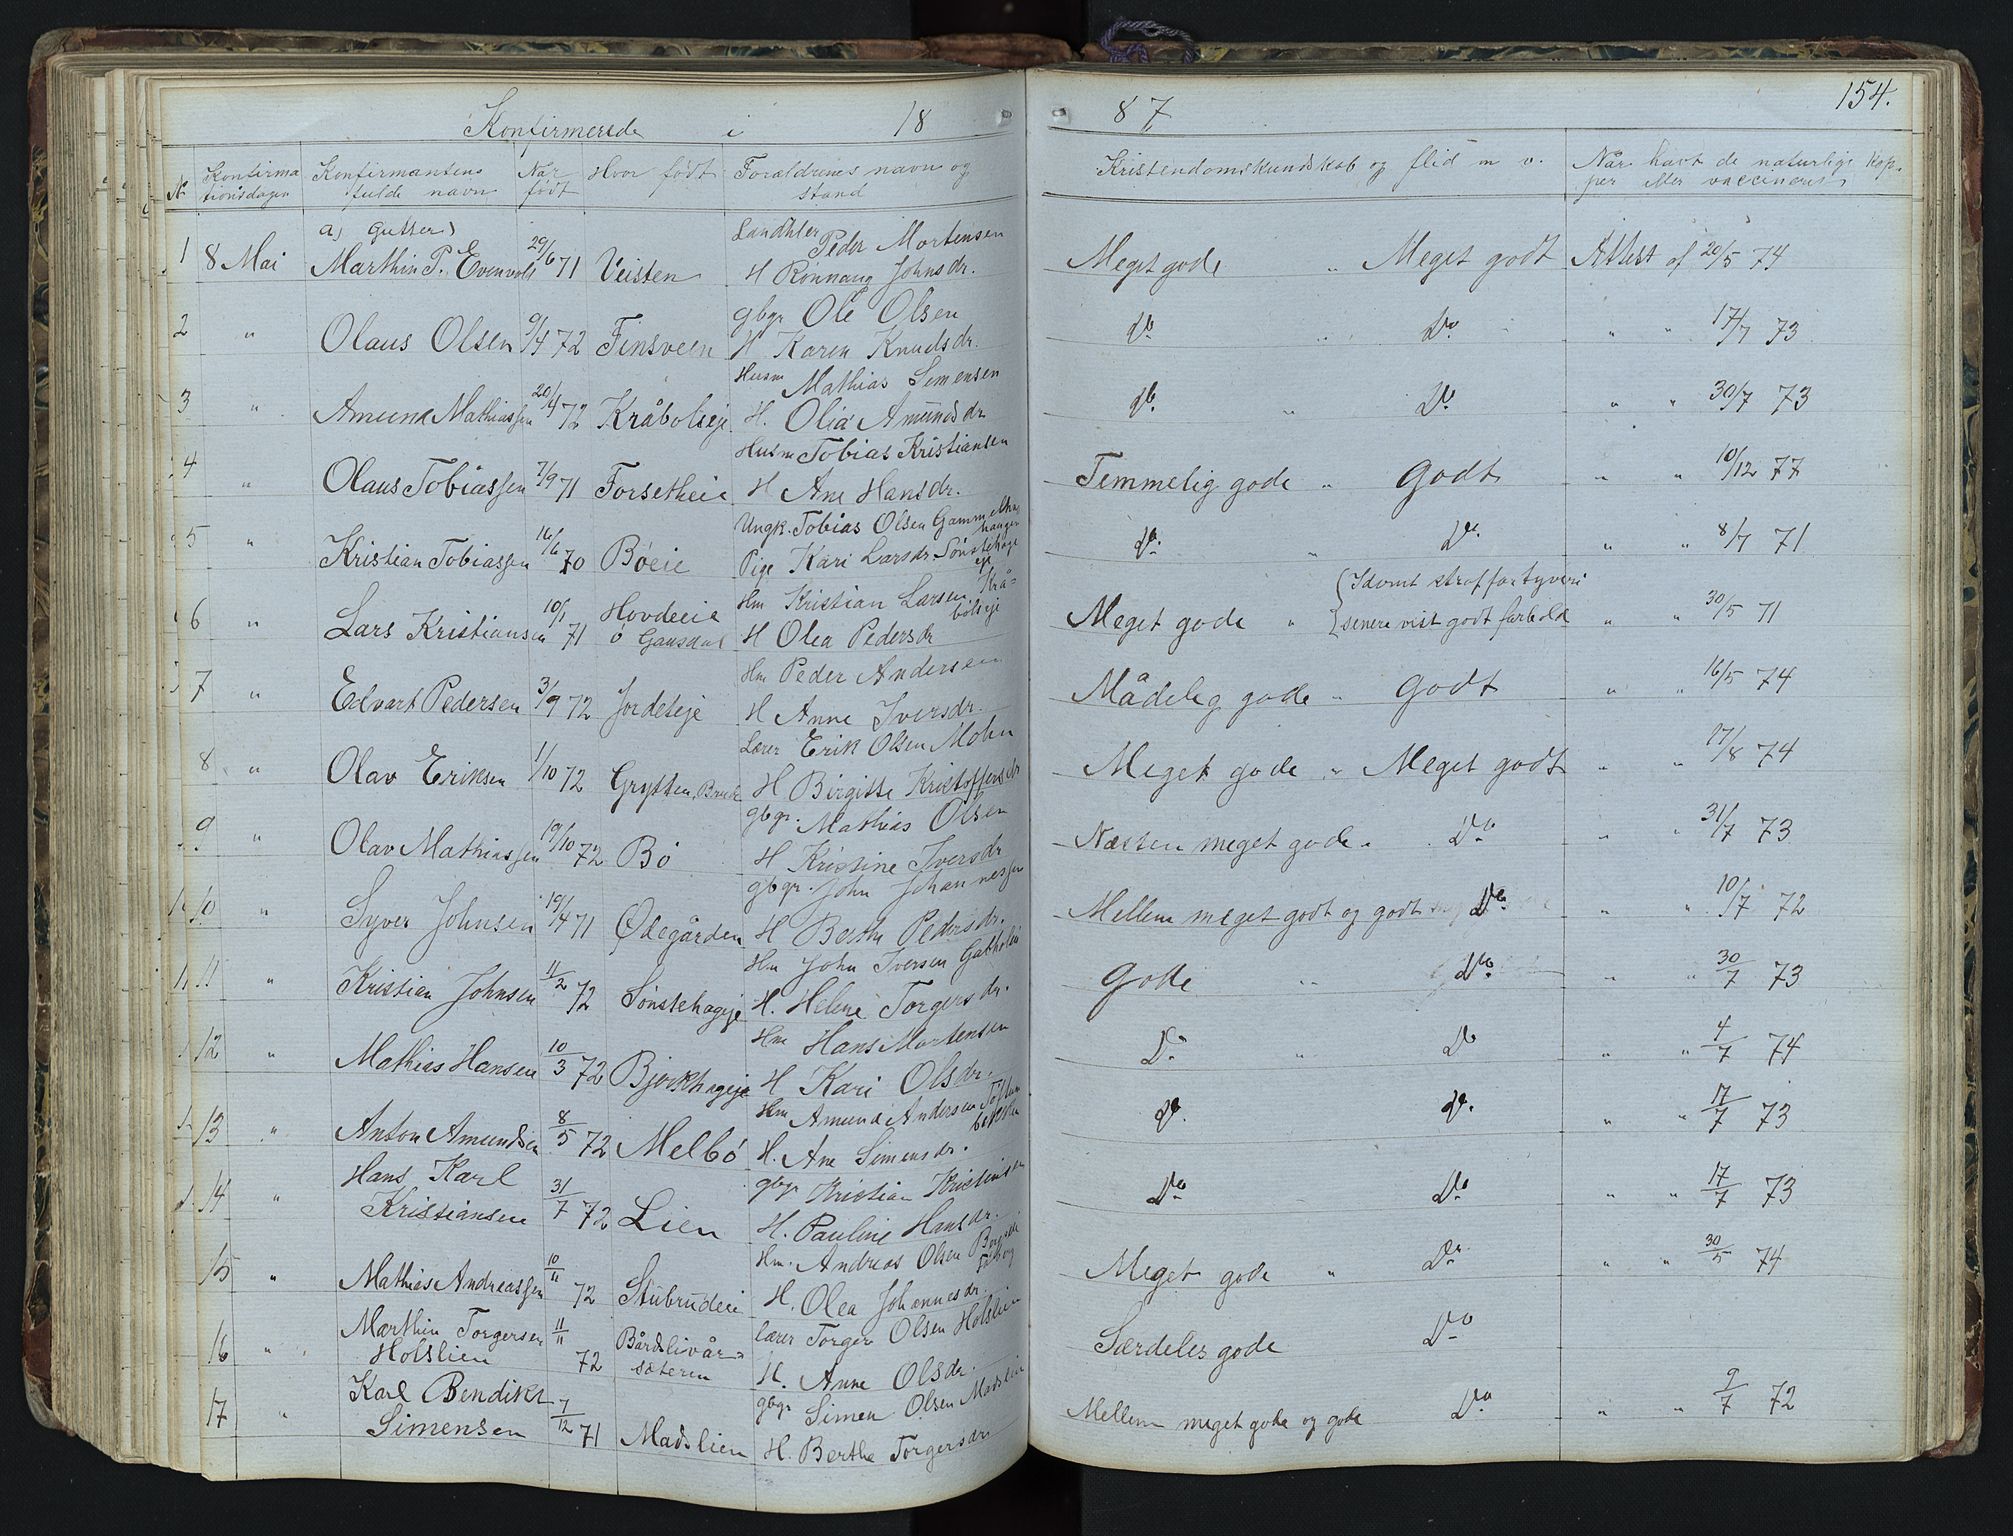 154.
Konfirmerede i 18 87
Nr Konfirmationsdagen Konfirmantens fulde navn Når født Hvor født Forældrenes navn og stand Kristendomskundskab og flid m v. Når havt de naturlige Kopper eller vaccineret
a) Gutter Landhlr Peder Mortensen
1 8 Mai Marthin P. Evenvold 29/6 71 Veisten H Rønnaug Johnsdr. Meget gode " Meget godt Attest af 20/5 74
gbgr Ole Olsen
2 " Olaus Olsen 9/4 72 Finsveen H Karen Knudsdr. Do " Do " " 17/7 73
Husm Mathias Simensen
3 " Amund Mathiassen 20/4 72 Kråbølseje H. Olia Amundsdr Do " Do " " 30/7 73
Husm Tobias Kristiansen
4 " Olaus Tobiassen 7/9 71 Forsetheie H Ane Hansdr. Temmelig gode " Godt " " 10/12 77
Ungk. Tobias Olsen
5 " Kristian Tobiassen 16/6 70 Bøeie Pige Kari Larsdr. Sønstehageje Do " Do " " 8/7 71
Hm Kristian Larsen Kråbølseje {Idømt straf for tyveri
6 " Lars Kristiansen 10/1 71 Hovdeeie ø Gausdal H Olea Pedersdr Meget gode " {senere vist godt forhold " " 30/5 71
Hm Peder Andersen
7 " Edvart Pedersen 3/9 72 Jordeteje H Anne Iversdr. Mådelig gode " Godt " " 16/5 74
Lærer Erik Olsen Mohn
8 " Olav Eriksen 1/10 72 Grytten, H Birgitte Kristoffersdr Meget gode " Meget godt " " 17/8 74
gbgr. Mathias Olsen
9 " Olav Mathiassen 19/10 72 Bø H Kristine Iversdr Næsten meget gode " Do " " 31/7 73
gbgr. John Johannessen
10 " Syver Johnsen 19/4 71 Ødegården H Berthe Pedersdr. Mellem meget godt og godt Do " " 10/7 72
Hm John Iversen
11 " Kristian Johnsen 11/2 72 Sønstehageje H. Helene Torgersdr. Gode " Do " " 30/7 73
Hm Hans Mortensen
12 " Mathias Hansen 10/3 72 Bjørkhageje H Kari Olsdr. Do " Do " " 4/7 74
Hm Amund Andersen
13 " Anton Amundsen 8/5 72 Melbø H. Ane Simensdr. Do Do " " 17/7 73
Hans Karl gbgr Kristian Kristiansen
14 " Kristiansen 31/7 72 Lien H. Pauline Hansdr. Do Do " " 17/7 73
Hm. Andreas Olsen
15 " Mathias Andreassen 10/11 72 Stubrudeie H. Olea Johannesdr. Meget gode " Do " " 30/5 74
Marthin Torgersen lærer Torger Olsen Holslien
16 " Holslien 11/11 72 Bårdslivårsæteren H. Anne Olsdr. Særdeles gode Do
Karl Bendikt gbgr Simen Olsen Madslien
17 " Simensen 7/12 71 Madslien H. Berthe Torgersdr Mellem meget gode og gode Do " " 9/7 72